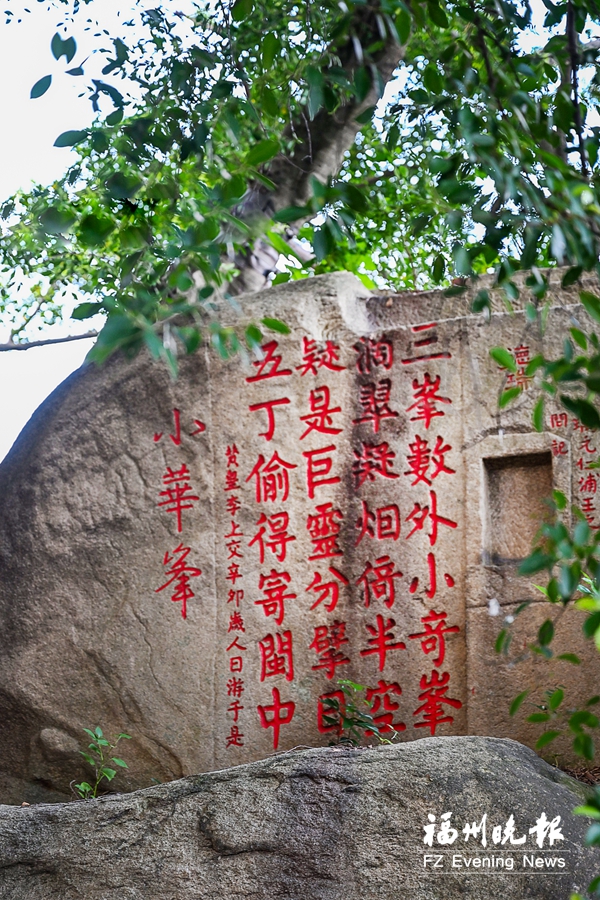 德珠
元仁浦
問記
三峯數外小奇峯
潤翠凝烟倚半空
疑是巨靈分擘日
五丁偷得寄閩中
贊皇李上交辛卯歲人日游于是
小華峯
福州晚报
FZ Evening News